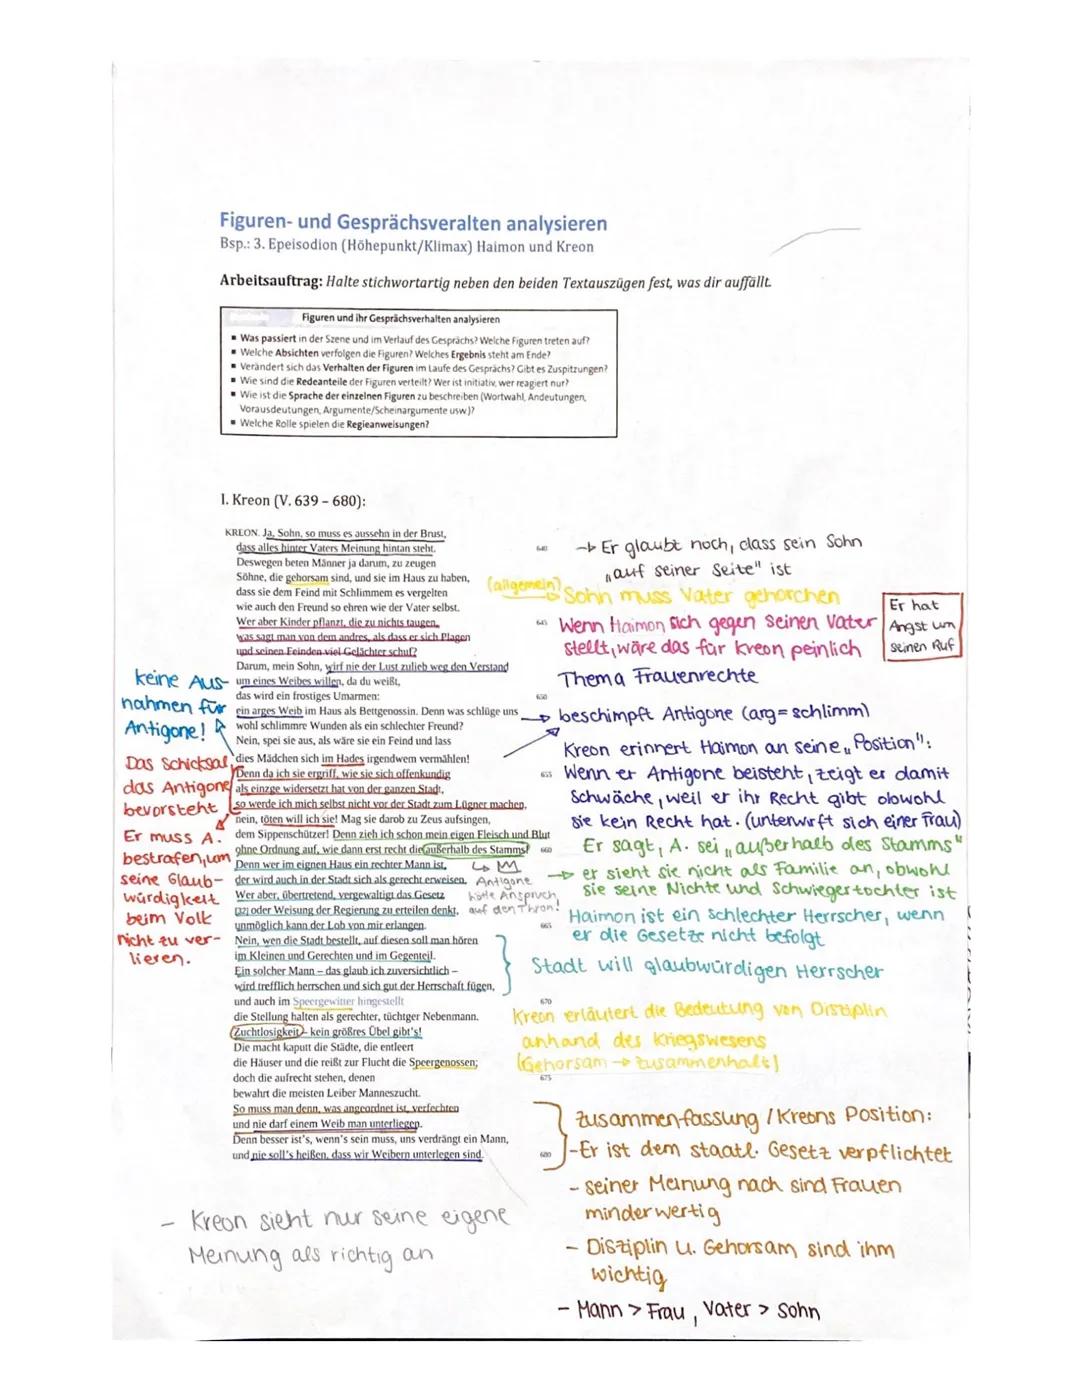 Figuren- und Gesprächsveralten analysieren
Bsp.: 3. Epeisodion (Höhepunkt/Klimax) Haimon und Kreon
Arbeitsauftrag: Halte stichwortartig neben den beiden Textauszügen fest, was dir auffällt.
Figuren und ihr Gesprächsverhalten analysieren
▪ Was passiert in der Szene und im Verlauf des Gesprächs? Welche Figuren treten auf?
▪ Welche Absichten verfolgen die Figuren? Welches Ergebnis steht am Ende?
▪ Verändert sich das Verhalten der Figuren im Laufe des Gesprächs? Gibt es Zuspitzungen?
▪ Wie sind die Redeanteile der Figuren verteilt? Wer ist initiativ, wer reagiert nur?
▪ Wie ist die Sprache der einzelnen Figuren zu beschreiben (Wortwahl, Andeutungen,
Vorausdeutungen, Argumente/Scheinargumente usw.)?
▪ Welche Rolle spielen die Regieanweisungen?
I. Kreon (V. 639 – 680):
KREON. Ja, Sohn, so muss es aussehn in der Brust,
dass alles hinter Vaters Meinung hintan steht.
640
Deswegen beten Männer ja darum, zu zeugen
Söhne, die gehorsam sind, und sie im Haus zu haben,
dass sie dem Feind mit Schlimmem es vergelten
wie auch den Freund so ehren wie der Vater selbst.
Wer aber Kinder pflanzt, die zu nichts taugen,
645
was sagt man von dem andres, als dass er sich Plagen
und seinen Feinden viel Gelächter schuf?
Darum, mein Sohn, wirf nie der Lust zulieb weg den Verstand
um eines Weibes willen, da du weißt,
das wird ein frostiges Umarmen:
650
ein arges Weib im Haus als Bettgenossin. Denn was schlüge uns
wohl schlimmre Wunden als ein schlechter Freund?
Nein, spei sie aus, als wäre sie ein Feind und lass
dies Mädchen sich im Hades irgendwem vermählen!
Denn da ich sie ergriff, wie sie sich offenkundig
655
als einzge widersetzt hat von der ganzen Stadt,
so werde ich mich selbst nicht vor der Stadt zum Lügner machen,
nein, töten will ich sie! Mag sie darob zu Zeus aufsingen,
dem Sippenschützer! Denn zieh ich schon mein eigen Fleisch und Blut
ohne Ordnung auf, wie dann erst recht die außerhalb des Stamms!
660
Denn wer im eignen Haus ein rechter Mann ist,
der wird auch in der Stadt sich als gerecht erweisen.
Wer aber, übertretend, vergewaltigt das Gesetz
oder Weisung der Regierung zu erteilen denkt,
unmöglich kann der Lob von mir erlangen.
665
Nein, wen die Stadt bestellt, auf diesen soll man hören
im Kleinen und Gerechten und im Gegenteil.
Ein solcher Mann – das glaub ich zuversichtlich –
wird trefflich herrschen und sich gut der Herrschaft fügen,
und auch im Speergewitter hingestellt
670
die Stellung halten als gerechter, tüchtiger Nebenmann.
Zuchtlosigkeit – kein größres Übel gibt's!
Die macht kaputt die Städte, die entleert
die Häuser und die reißt zur Flucht die Speergenossen;
doch die aufrecht stehen, denen
675
bewahrt die meisten Leiber Manneszucht.
So muss man denn, was angeordnet ist, verfechten
und nie darf einem Weib man unterliegen.
Denn besser ist's, wenn's sein muss, uns verdrängt ein Mann,
und nie soll's heißen, dass wir Weibern unterlegen sind.
680
keine Aus-
nahmen für
Antigone!
Das Schicksal
das Antigone
bevorsteht
Er muss A.
bestrafen, um
seine Glaub-
würdigkeit
beim Volk
nicht zu ver-
lieren.
→ Er glaubt noch, dass sein Sohn
„auf seiner Seite" ist
(allgemein)
Sohn muss Vater gehorchen
Wenn Haimon sich gegen seinen Vater
stellt, wäre das für Kreon peinlich
Er hat
Angst um
seinen Ruf
Thema Frauenrechte
→ beschimpft Antigone (arg = schlimm)
Kreon erinnert Haimon an seine „Position":
Wenn er Antigone beisteht, zeigt er damit
Schwäche, weil er ihr Recht gibt obwohl
sie kein Recht hat. (unterwirft sich einer Frau)
Er sagt, A. sei „außerhalb des Stamms"
→ er sieht sie nicht als Familie an, obwohl
sie seine Nichte und Schwiegertochter ist
Antigone
hätte Anspruch
auf den Thron!
Haimon ist ein schlechter Herrscher, wenn
er die Gesetze nicht befolgt
Stadt will glaubwürdigen Herrscher
Kreon erläutert die Bedeutung von Disziplin
anhand des Kriegswesens
(Gehorsam → Zusammenhalt)
Zusammenfassung / Kreons Position:
- Er ist dem staatl. Gesetz verpflichtet
- seiner Meinung nach sind Frauen
minderwertig
- Disziplin u. Gehorsam sind ihm
wichtig
- Mann > Frau, Vater > Sohn
- Kreon sieht nur seine eigene
Meinung als richtig an